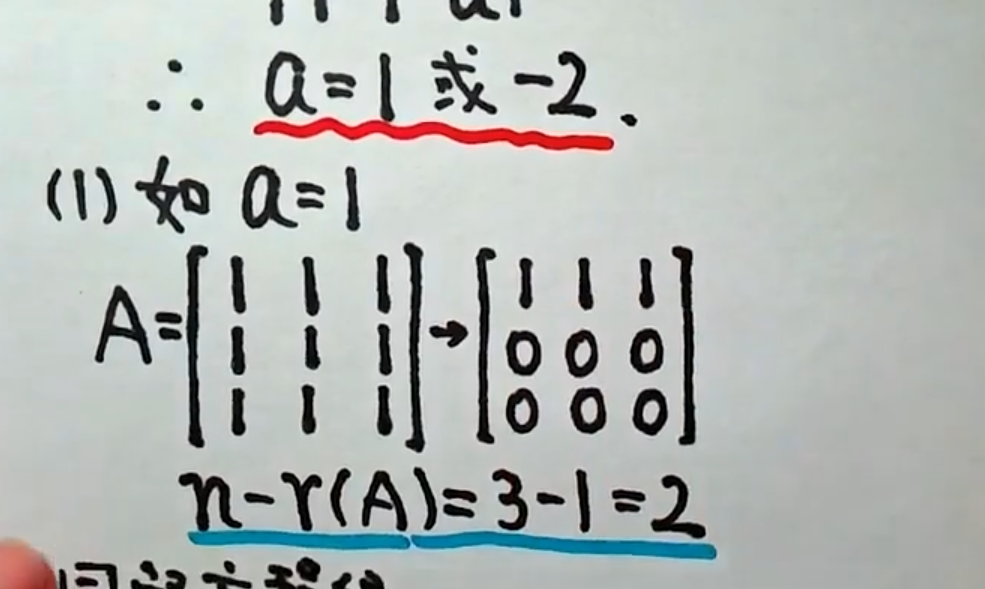 ∴ a=1 或 -2.
(1) 如 a=1
A=[1 1 1 → [1 1 1
1 1 1 0 0 0
1 1 1] 0 0 0]
n-r(A)=3-1=2